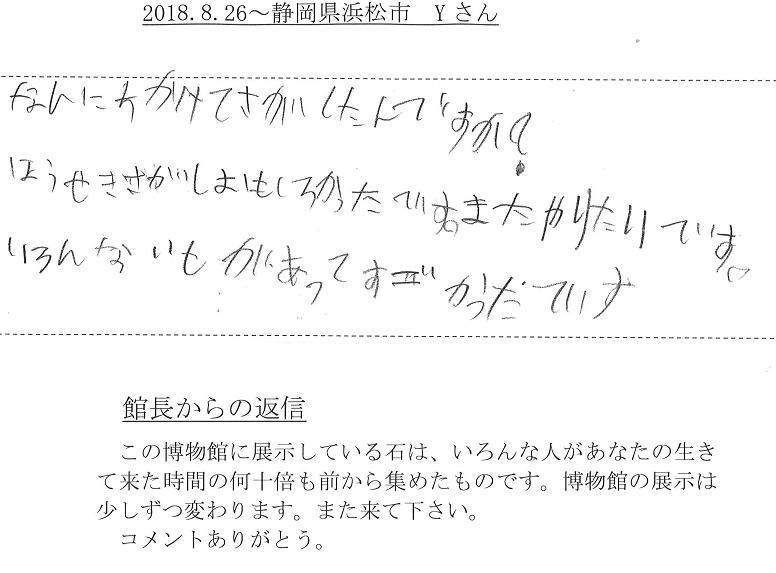 2018.8.26～静岡県浜松市　Yさん
なんにちかけてさがしたんですか?
ほうせきさがしおもしろかったです。またやりたいです。
いろんないしがあってすごかったです
館長からの返信
この博物館に展示している石は、いろんな人があなたの生き
て来た時間の何十倍も前から集めたものです。博物館の展示は
少しずつ変わります。また来て下さい。
コメントありがとう。